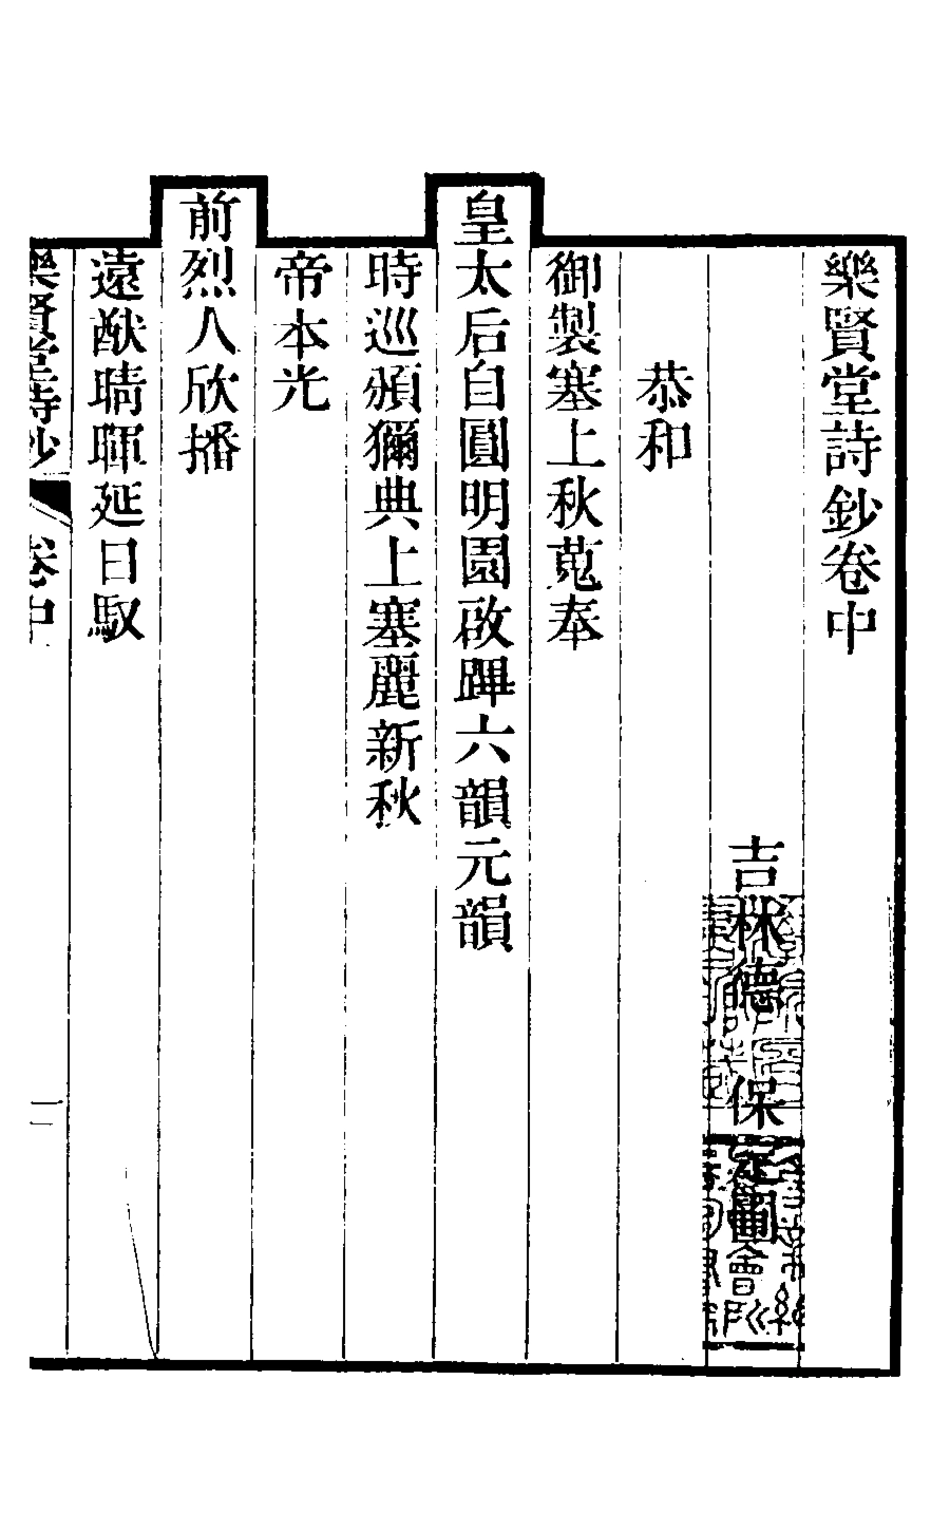 樂賢堂詩鈔卷中
吉林德保定圃
恭和
御製塞上秋蒐奉
皇太后自圓明園啟蹕六韻元韻
時巡頒獮典上塞麗新秋
帝本光
前烈人欣播
遠猷晴暉延日馭
樂賢堂詩鈔 卷中 一